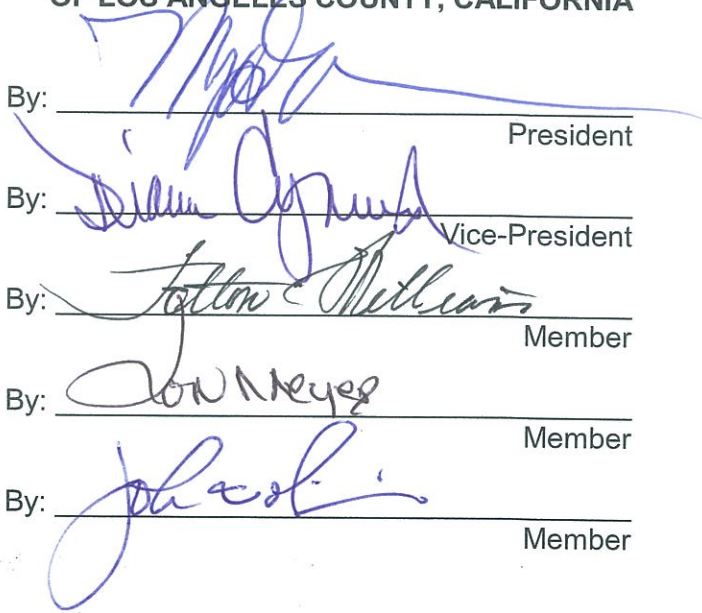 OF LOS ANGELES COUNTY, CALIFORNIA
By:
President
By: Diana
Vice-President
By: Williams
Member
By: Jon Meyer
Member
By: John
Member